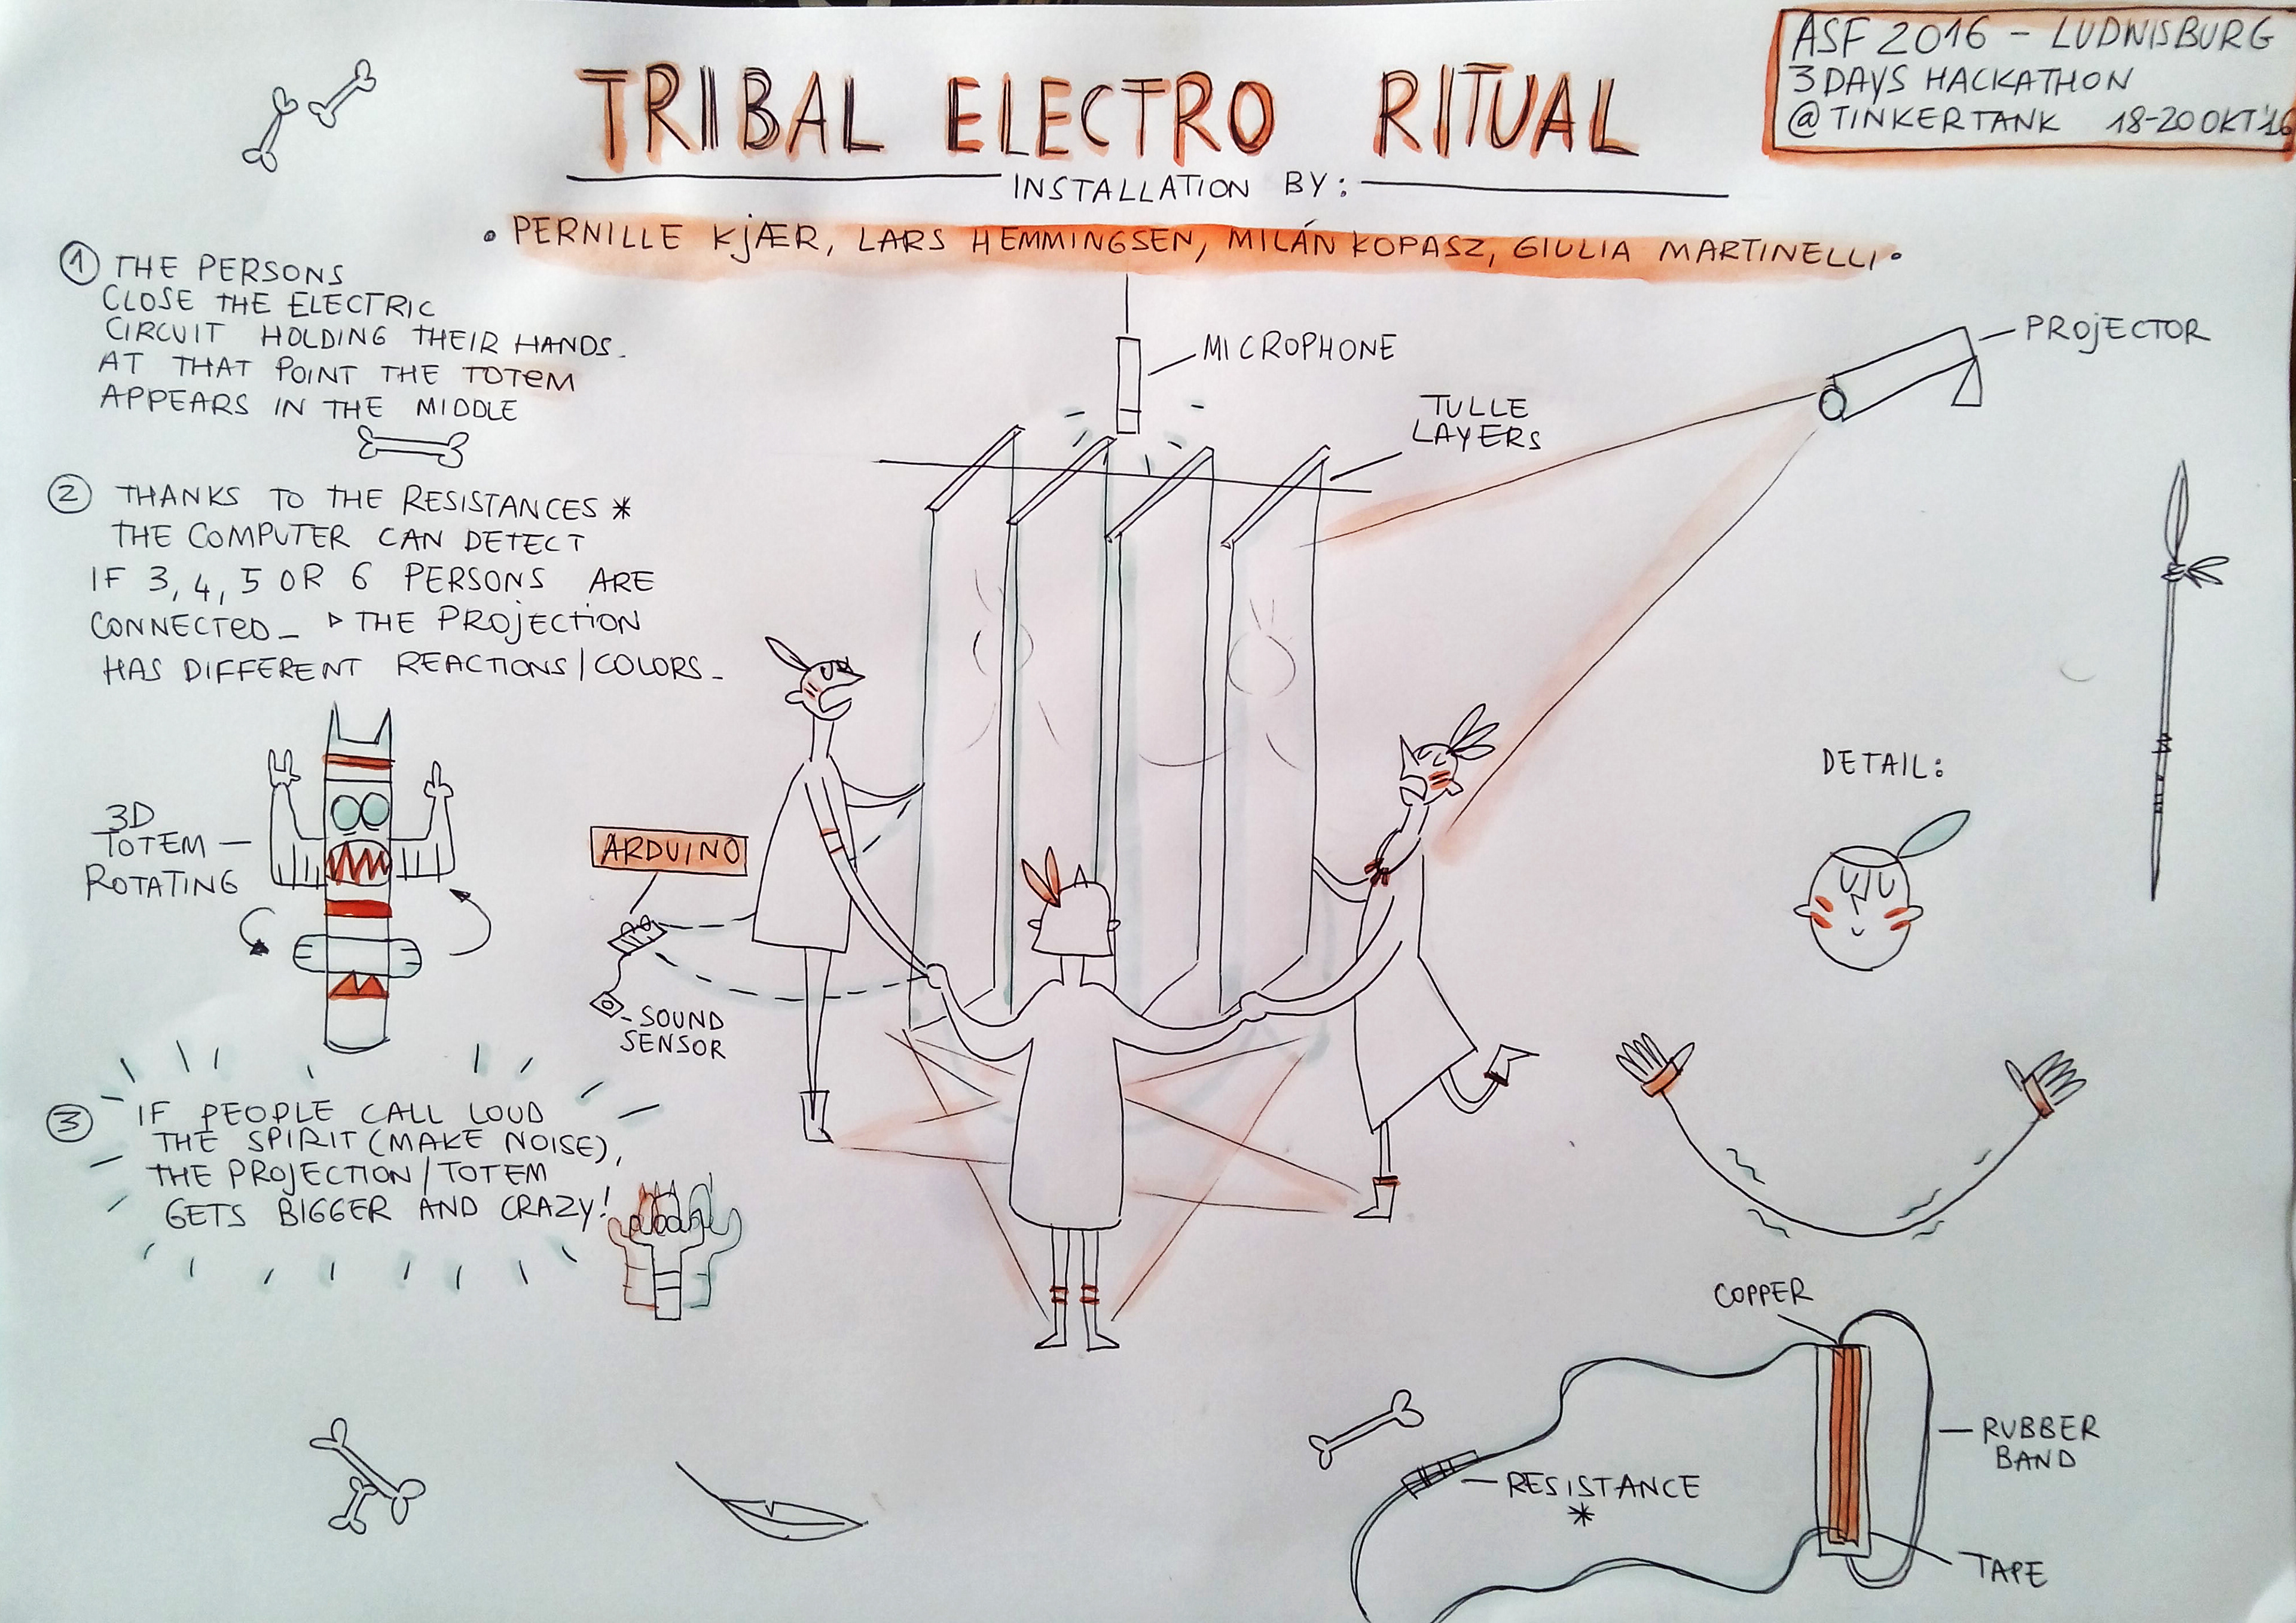 ASF 2016 - LUDWISBURG
3 DAYS HACKATHON
@TINKERTANK 18-20 OKT'16
TRIBAL ELECTRO RITUAL
INSTALLATION BY:
• PERNILLE KJÆR, LARS HEMMINGSEN, MILÁN KOPASZ, GIULIA MARTINELLI •
1 THE PERSONS
CLOSE THE ELECTRIC
CIRCUIT HOLDING THEIR HANDS.
AT THAT POINT THE TOTEM
APPEARS IN THE MIDDLE
2 THANKS TO THE RESISTANCES *
THE COMPUTER CAN DETECT
IF 3, 4, 5 OR 6 PERSONS ARE
CONNECTED_ ▷ THE PROJECTION
HAS DIFFERENT REACTIONS/COLORS_
3D
TOTEM
ROTATING
3 IF PEOPLE CALL LOUD
THE SPIRIT (MAKE NOISE),
THE PROJECTION/TOTEM
GETS BIGGER AND CRAZY!
MICROPHONE
TULLE
LAYERS
PROJECTOR
ARDUINO
SOUND
SENSOR
DETAIL:
COPPER
RUBBER
BAND
RESISTANCE
*
TAPE